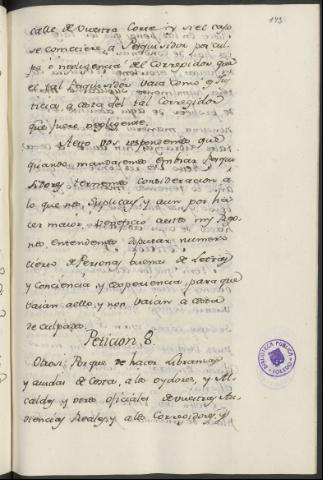 143
calle de vuestra Corte: y si el caso
se cometiere a Pesquisidor por cul
pa o negligencia del Corregidor que
el tal Pesquisidor vaia como Jus
ticia a costa del tal Corregidor
que fuere negligente.
A esto vos respondemos que
quando mandaremos embiar Pesqui
sidores ternemos consideracion a
lo que nos suplicais y aun por ha
cer maior beneficio a estos mis Rey
nos, entendemos diputar numero
cierto de Personas buenas de Letras
y Conciencia y experiencia para que
vaian a ello, y non vaian a costa
de culpados.
Peticion 8
Otrosi: Porque de hacer Libranzas
y aiudas de Costa, a los oydores, y Al
caldes y otros oficiales de vuestras Au
diencias Reales, y a los Corregidores, y
BIBLIOTECA PUBLICA
TOLEDO